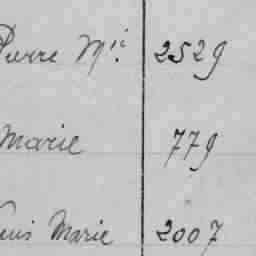 Pierre Mie. 2529
Marie 779
Marie 2007